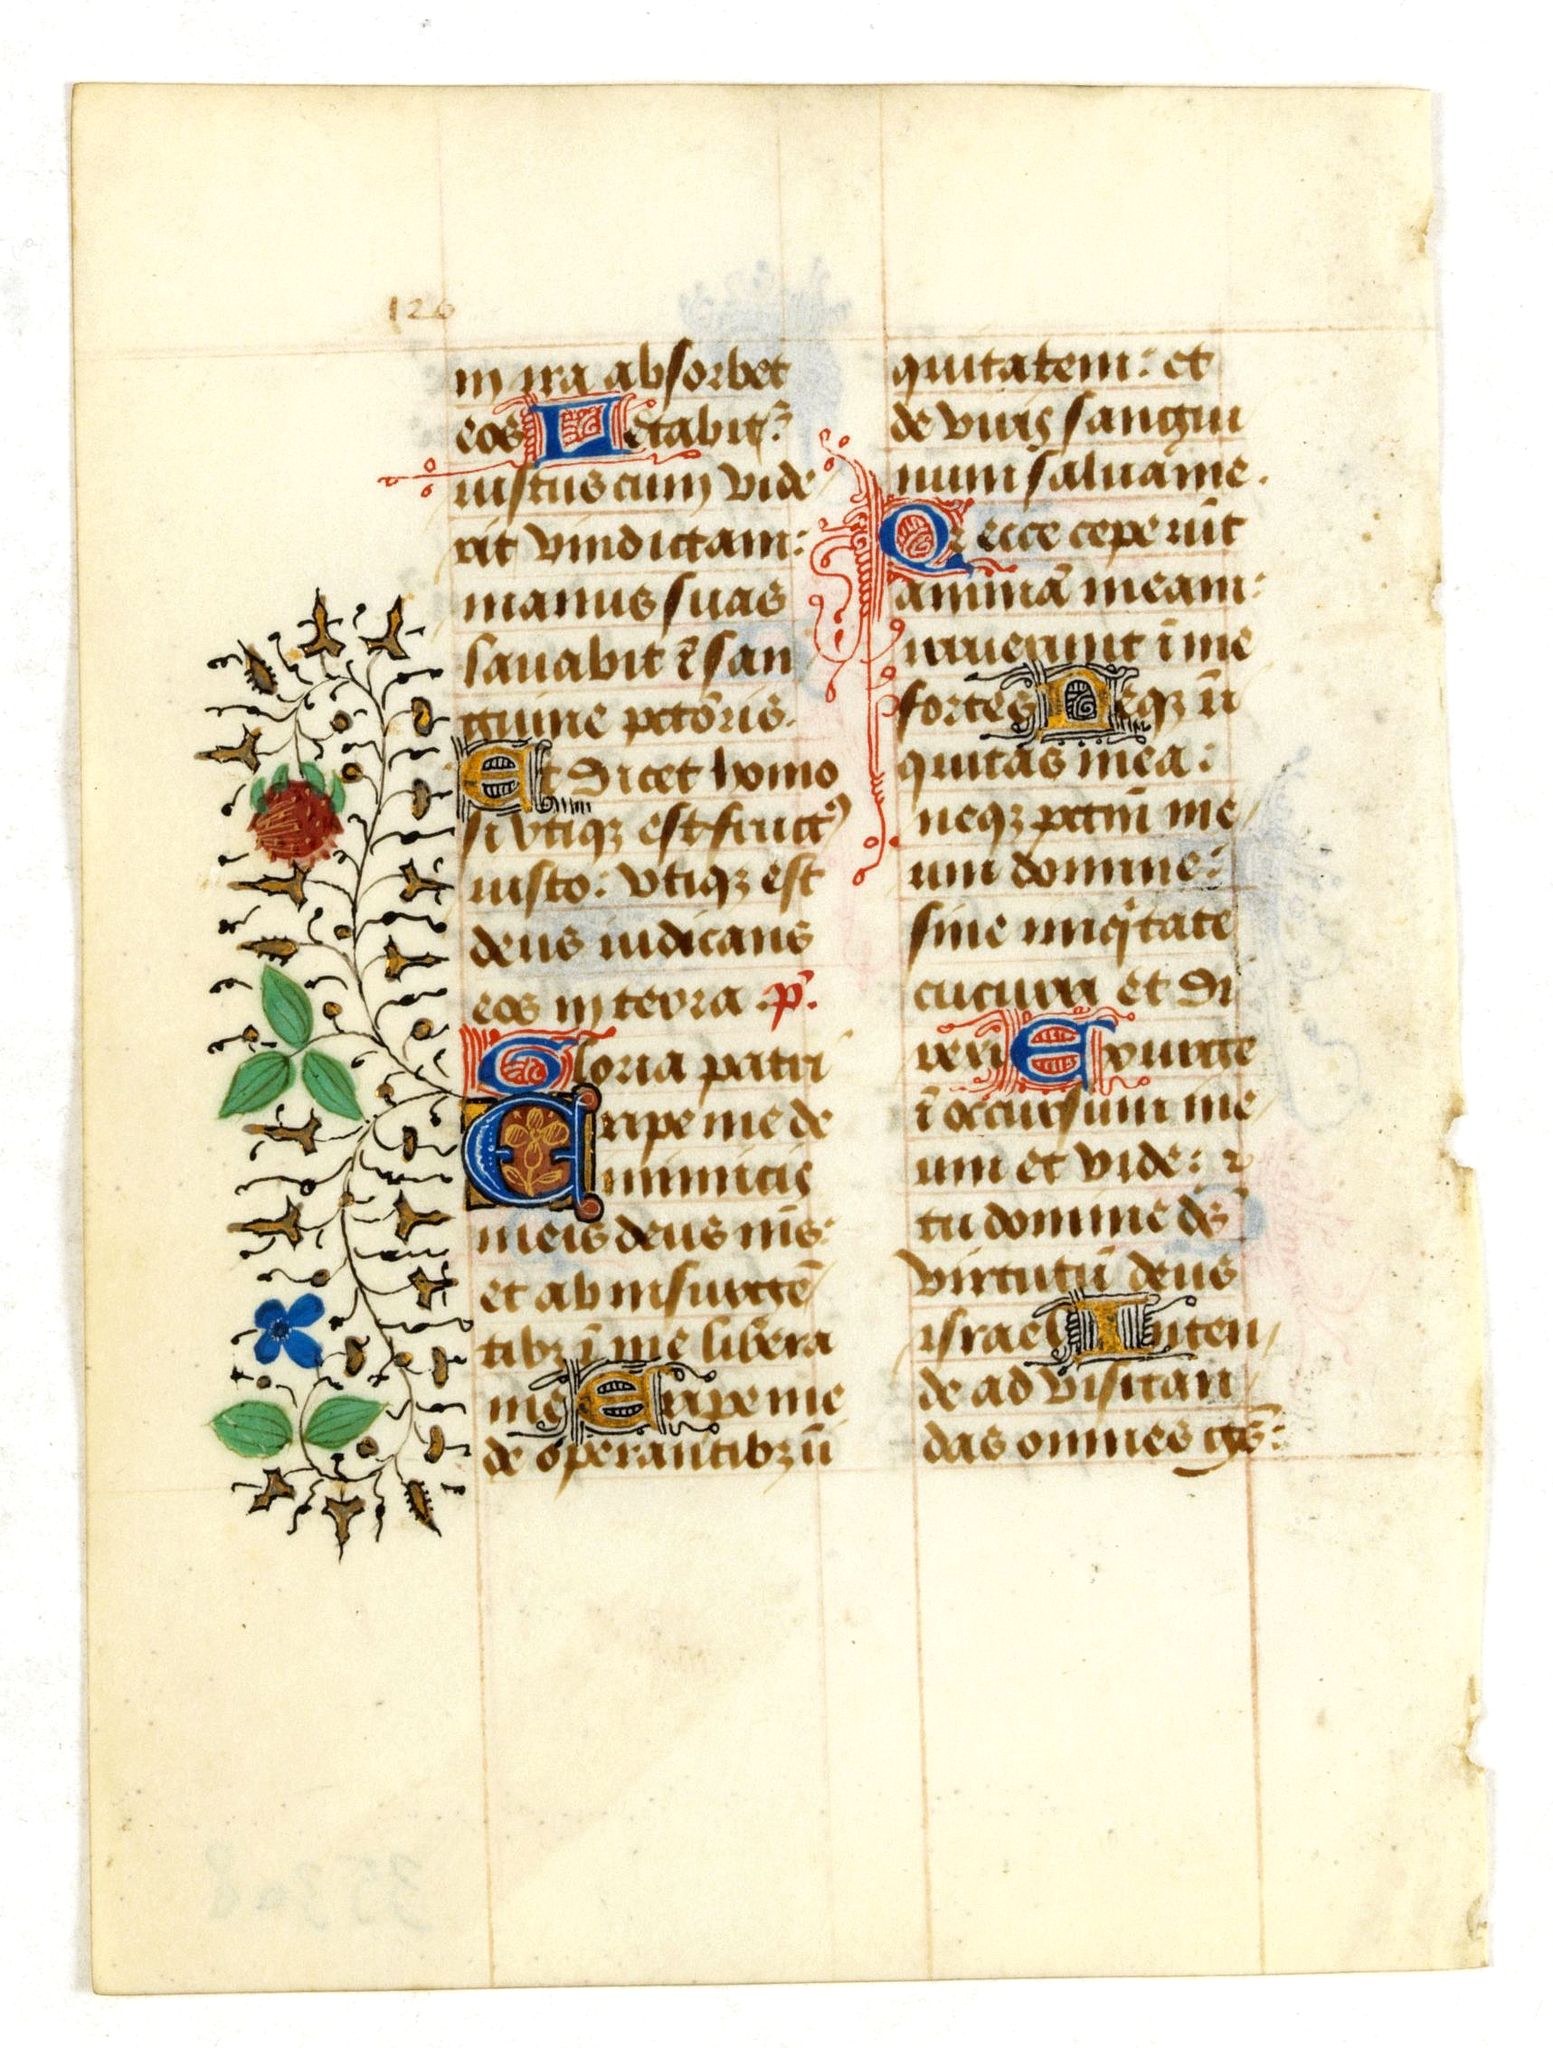 126
in ira absorbet
eos Letabit᷑
iustus cum vide
rit vindictam:
manus suas
lauabit ī san
guine pctōris.
Et dicet homo
si vtiqꝫ est fruct⁹
iusto: vtiqꝫ est
deus iudicans
eos in terra. p̄.
Gloria patri
Eripe me de
inimicis
meis deus m̄s:
et ab insurgē
tibꝫ ī me libera
me Eripe me
de operantibꝫ ī
quitatem: et
de viris sangui
num salua me.
Qr ecce ceperūt
animā meam:
irruerunt ī me
fortes Neqꝫ ī
quitas mea:
neqꝫ pctm̄ me
um domine:
sine iniq̇tate
cucurri et di
rexi Exurge
ī occursum me
um et vide: ꝛ
tu domine ds̄
virtutū deus
israel Inten
de ad visitan
das omnes gs̄:
35308